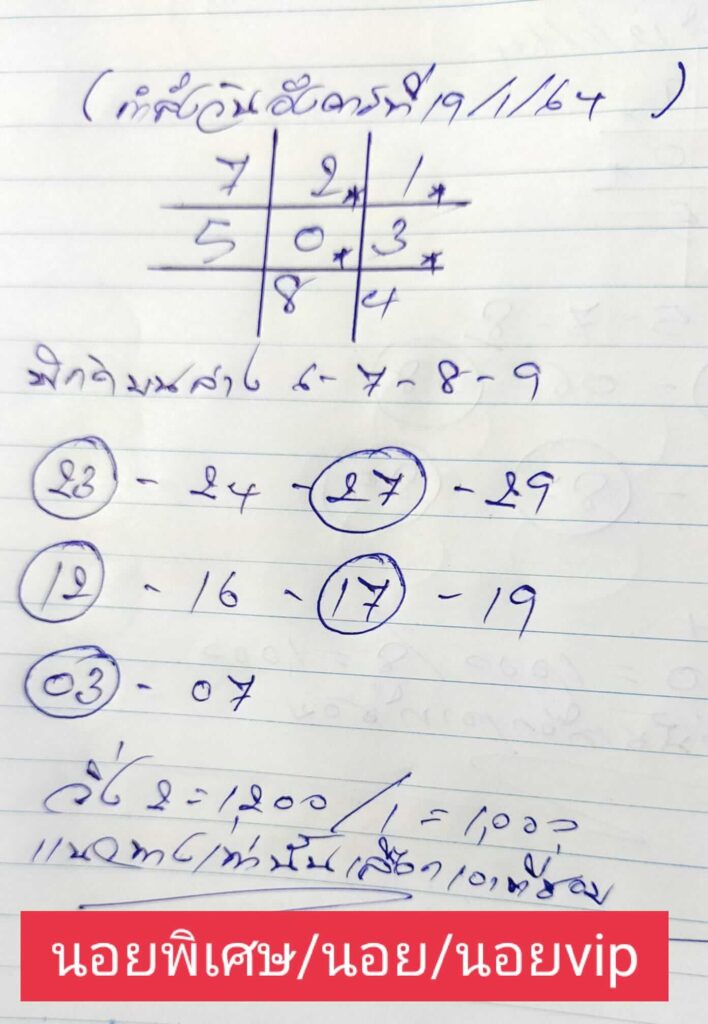 (กำลังวันอังคารที่ 19/1/64)
7 2* 1*
5 0* 3*
8 4
พิกัดบนล่าง 6-7-8-9
23 - 24 - 27 - 29
12 - 16 - 17 - 19
03 - 07
วิ่ง 2 = 1,200 / 1 = 1,000
แนวทางเท่านั้นเลือกเอาที่ชอบ
นอยพิเศษ/นอย/นอยvip